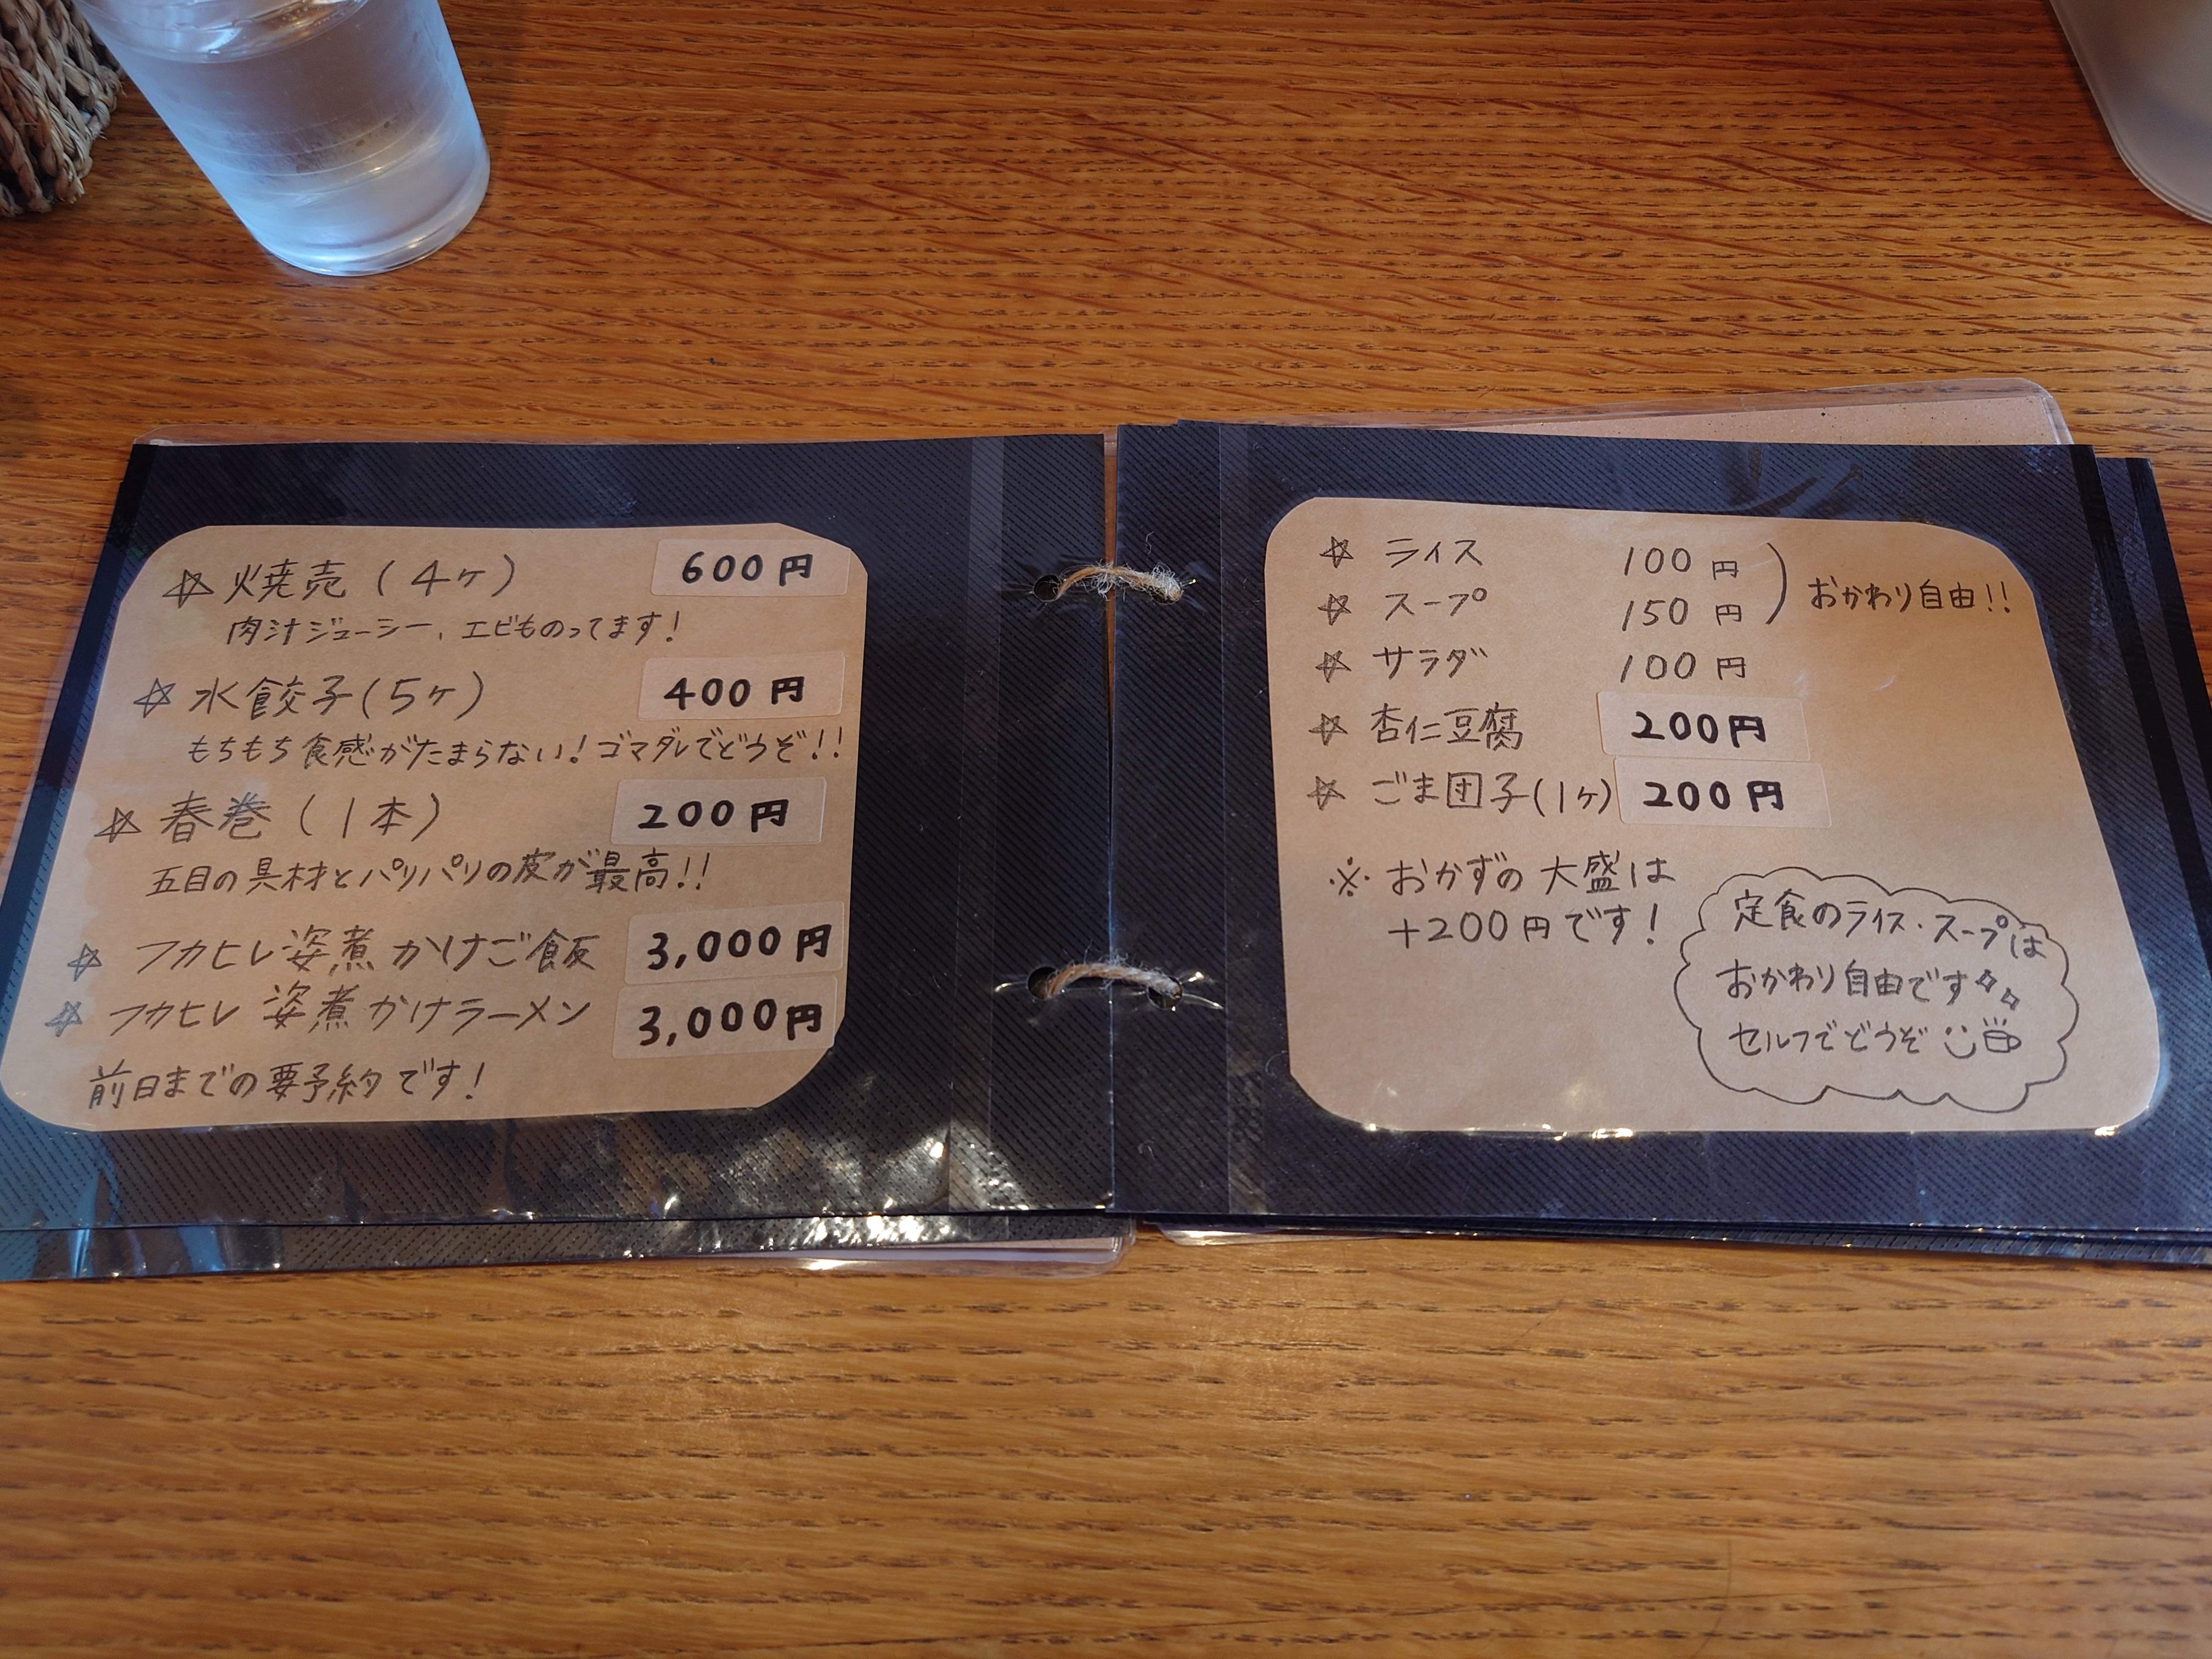 ☆ 焼売(4ヶ) 600円
肉汁ジューシー、エビものってます!
☆ 水餃子(5ヶ) 400円
もちもち食感がたまらない!ゴマダレでどうぞ!!
☆ 春巻(1本) 200円
五目の具材とパリパリの皮が最高!!
☆ フカヒレ姿煮かけご飯 3,000円
☆ フカヒレ姿煮かけラーメン 3,000円
前日までの要予約です!
☆ ライス 100円
☆ スープ 150円
おかわり自由!!
☆ サラダ 100円
☆ 杏仁豆腐 200円
☆ ごま団子(1ヶ) 200円
※ おかずの大盛は
+200円です!
定食のライス・スープは
おかわり自由です
セルフでどうぞ